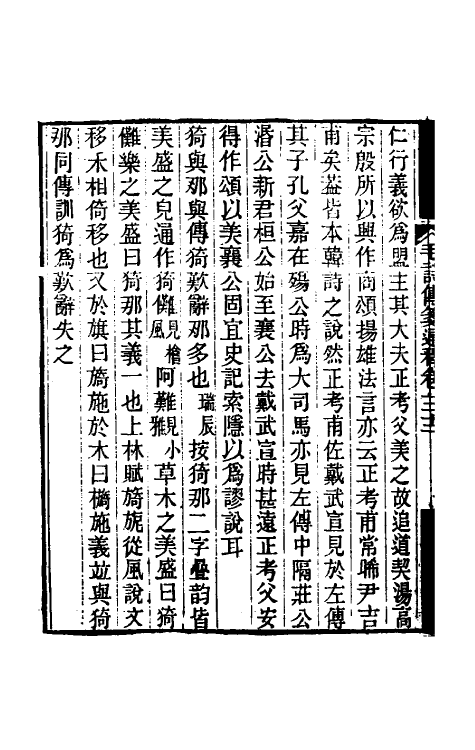 毛詩傳箋通釋卷三十二
仁行義欲為盟主其大夫正考父美之故追道契湯高
宗殷所以興作商頌揚雄法言亦云正考甫常睎尹吉
甫矣葢皆本韓詩之說然正考甫佐戴武宣見於左傳
其子孔父嘉在殤公時爲大司馬亦見左傳中隔莊公
湣公新君桓公始至襄公去戴武宣時甚遠正考父安
得作頌以美襄公固宜史記索隱以爲謬說耳
猗與那與傳猗歎辭那多也瑞辰按猗那二字疊韵皆
美盛之皃通作猗儺見檜風阿難見小雅草木之美盛曰猗
儺樂之美盛曰猗那其義一也上林賦旖旎從風說文
移禾相倚移也又於旗曰旖施於木曰檹施義竝與猗
那同傳訓猗爲歎辭失之